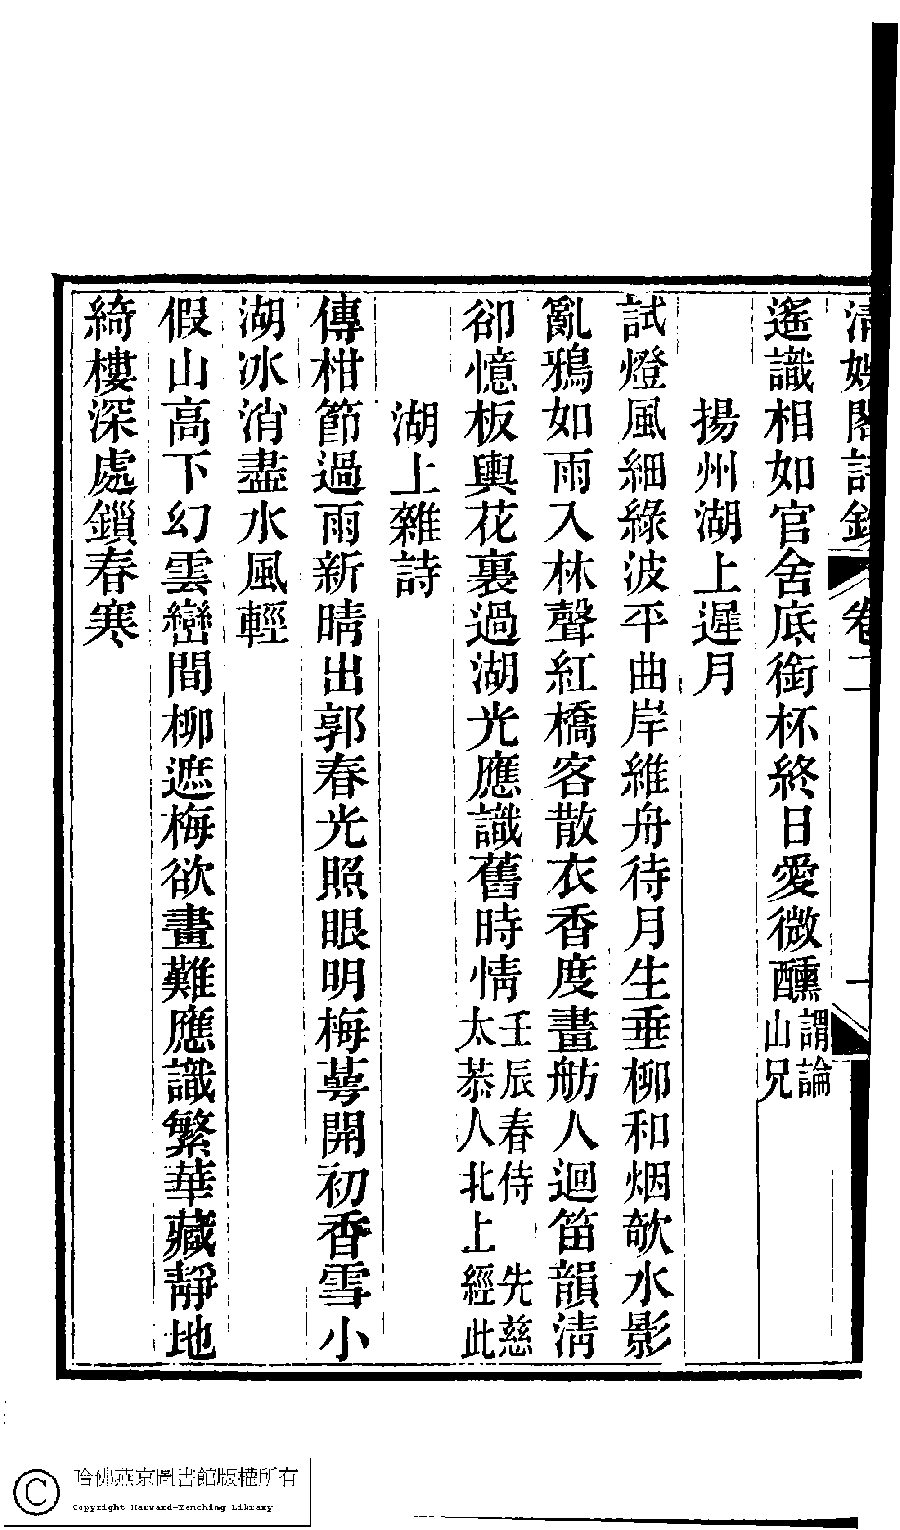 清娛閣詩鈔 卷二 一
遙識相如官舍底銜杯終日愛微醺謂論
山兄
揚州湖上遲月
試燈風細綠波平曲岸維舟待月生垂柳和烟欹水影
亂鴉如雨入林聲紅橋客散衣香度畫舫人迴笛韻清
卻憶板輿花裏過湖光應識舊時情壬辰春侍 先慈
太恭人北上經此
湖上雜詩
傳柑節過雨新晴出郭春光照眼明梅萼開初香雪小
湖冰消盡水風輕
假山高下幻雲巒間柳遮梅欲畫難應識繁華藏靜地
綺樓深處鎖春寒
哈佛燕京圖書館版權所有
Copyright Harvard-Yenching Library